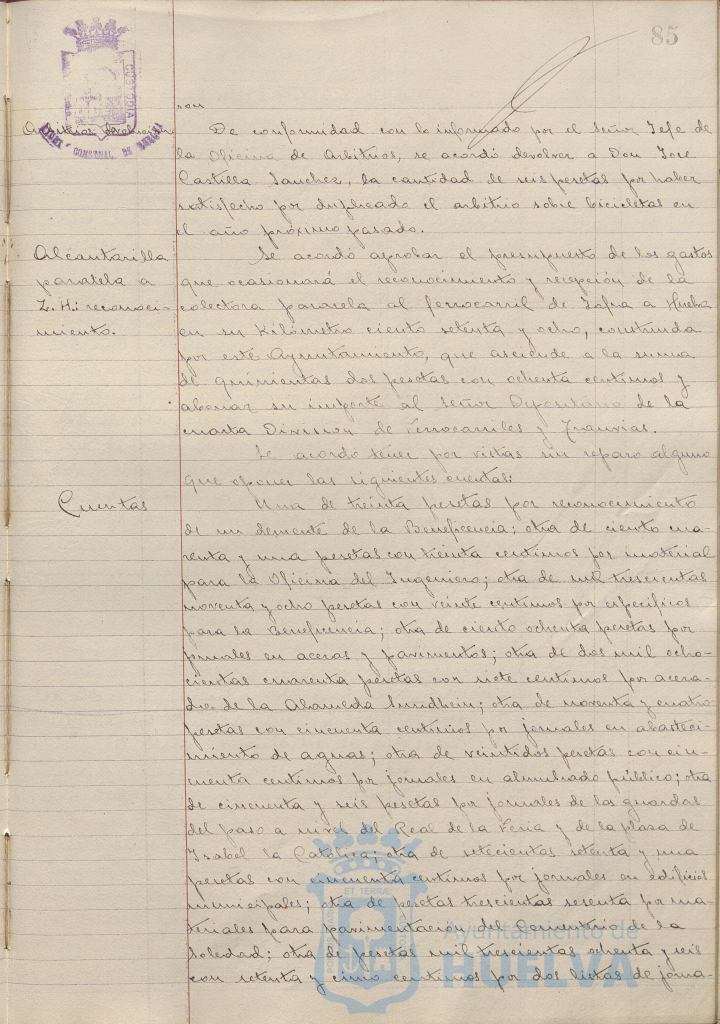 85
CUSTODIA
ron
De conformidad con lo informado por el Señor Jefe de
la Oficina de Arbitrios, se acordó devolver a Don Jose
Castilla Sanchez, la cantidad de seis pesetas por haber
satisfecho por duplicado el arbitrio sobre bicicletas en
el año próximo pasado.
Alcantarilla
paralela a
Z. H.: reconoci-
miento.
Se acordó aprobar el presupuesto de los gastos
que ocasionará el reconocimiento y recepción de la
colectora paralela al ferrocarril de Zafra a Huelva
en su Kilómetro ciento setenta y ocho, construida
por este Ayuntamiento, que asciende a la suma
de quinientas dos pesetas con ochenta centimos y
abonar su importe al Señor Depositario de la
cuarta Division de Ferrocarriles y Tranvias.
Se acordó tener por vistas sin reparo alguno
que oponer las siguientes cuentas:
Cuentas
Una de treinta pesetas por reconocimiento
de un demente de la Beneficencia; otra de ciento cua-
renta y una pesetas con treinta centimos por material
para la Oficina del Ingeniero; otra de mil trescientas
noventa y ocho pesetas con veinte centimos por especificos
para la Beneficencia; otra de ciento ochenta pesetas por
jornales en aceras y pavimentos; otra de dos mil ocho-
cientas cuarenta pesetas con siete centimos por acera-
do de la Alameda Sundheim; otra de noventa y cuatro
pesetas con cincuenta centimos por jornales en abasteci-
miento de aguas; otra de veintidos pesetas con cin-
cuenta centimos por jornales en alumbrado público; otra
de cincuenta y seis pesetas por jornales de los guardas
del paso a nivel del Real de la Feria y de la plaza de
Isabel la Católica; otra de setecientas setenta y una
pesetas con cincuenta centimos por jornales en edificios
municipales; otra de pesetas trescientas sesenta por ma-
teriales para pavimentación del Cementerio de la
Soledad; otra de pesetas mil trescientas ochenta y seis
con setenta y cinco centimos por dos listas de jorna-
Ayuntamiento de
HUELVA